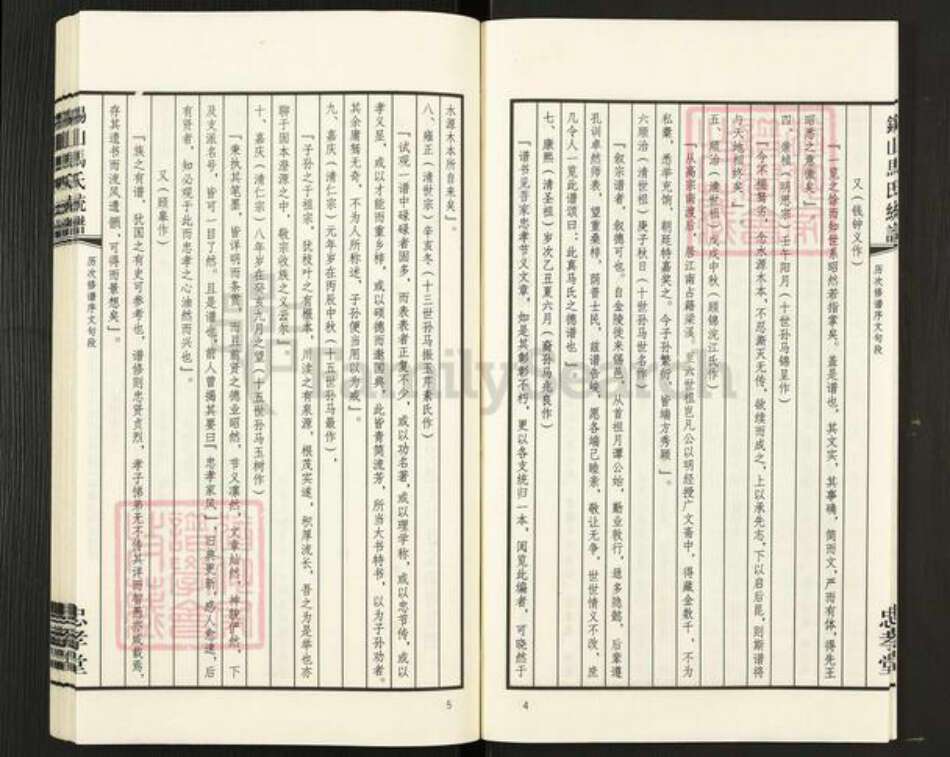 又（钱钟义作）
「一览之馀而知世系昭然若指掌矣。盖是谱也，其文实，其事确，简而文，严而有体，得先王
昭悉之意微矣」
四、崇祯（明思宗）壬午阳月（十世孙马锡呈作）
「今不揣驽劣，念水源木本，不忍澌灭无传，欲续而成之，上以承先志，下以启后昆，则斯谱将
与天地相终矣」
五、顺治（清世祖）戊戌中秋（顾锦浣江氏作）
「从高宗南渡后，居江南占籍梁溪。三六世祖岂凡公以明经授广文斋中，得藏金数千，不为
私囊，悉举充饷，朝廷特嘉奖之。今子孙繁衍，皆端方秀颖」。
六顺治（清世祖）庚子秋日（十世孙马世名作）
「叙宗谱者，叙德可也。自金陵徙来锡邑，从首祖月潭公始，勤业敦行，迨多隐懿，后辈遵
孔训卓然师表，望重桑梓，阴普士民，兹谱告竣，愿各端己睦亲，敬让无争，世世情义不改，庶
几今人一览此谱颂曰：此真马氏之德谱也」
七、康熙（清圣祖）岁次乙丑夏六月（裔孙马兆良作）
「谱书见吾家忠孝节义文章，如是其彰彰不朽，更以各支统归一本，阅览此编者，可晓然于
历次修谱序文句段
忠孝堂
4
水源木本所自来矣」。
八、雍正（清世宗）辛亥冬（十三世孙马振玉芹素氏作）
「试观一谱中碌碌者固多，而表表者正复不少，或以功名著，或以理学称，或以忠节传，或以
孝义显，或以才能而重乡梓，或以硕德而邀国典，此皆青简流芳，所当大书特书，以为子孙劝者。
其余庸驽无奇，不为人所称述，子孙便当用以为戒」。
九、嘉庆（清仁宗）元年岁在丙辰中秋（十五世孙马最作），
「子孙之于祖宗，犹枝叶之有根本，川渎之有来源，根茂实遂，积厚流长，吾之为是举也亦
聊于固本澄源之中，敬宗收族之义云尔」
十、嘉庆（清仁宗）八年岁在癸亥九月之望（十五世孙马玉树作）
「秉执其笔墨，皆详明而条贯，而且前贤之德业昭然，节义凛然，文章灿然，神貌俨然，下
及支派名号，皆可一目了然。且是谱也，前人曾揭其要曰「忠孝家风」，旧典更新，感人愈速，后
有贤者，知必观于此而忠孝之心油然而兴也」。
又（顾皋作）
「族之有谱，犹国之有史可参考也，谱修则忠贤贞烈，孝子悌弟无不传其详而智愚亦咸载焉，
存其遗书而流风遗韵，可得而景想矣」。
历次修谱序文句段
锡山马氏统谱
忠孝堂
5